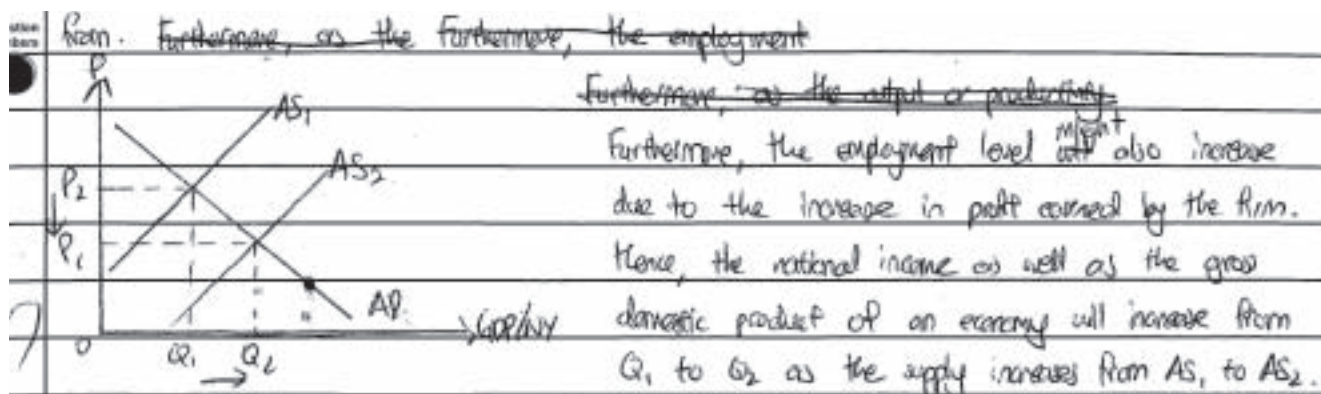 from. Furthermore, as the Furthermore, the employment
Furthermore, as the output or productivity
might
Furthermore, the employment level will also increase
due to the increase in profit earned by the firm.
Hence, the national income as well as the gross
domestic product of an economy will increase from
Q₁ to Q₂ as the supply increases from AS₁ to AS₂.
P
AS₁
AS₂
P₂
P₁
AD
GDP/NY
0
Q₁
Q₂